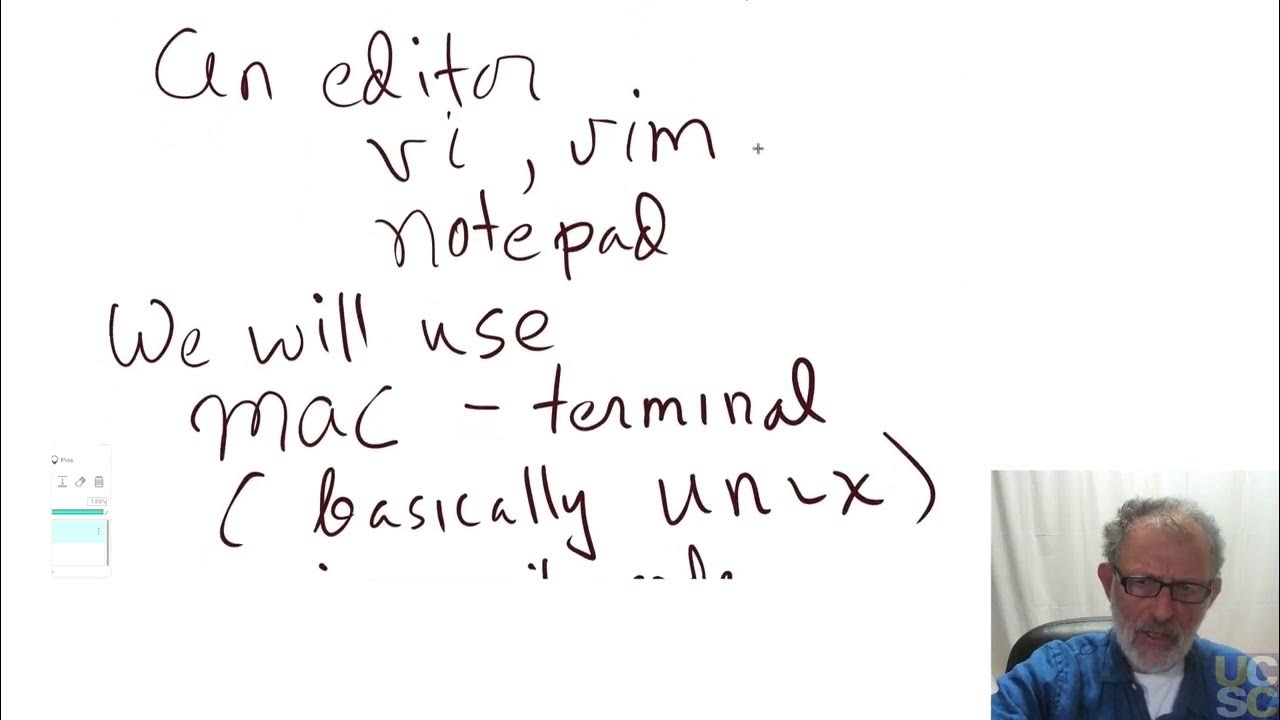 an editor
vi, vim
notepad
We will use
mac - terminal
(basically unix)
Pins
100%
UC
SC